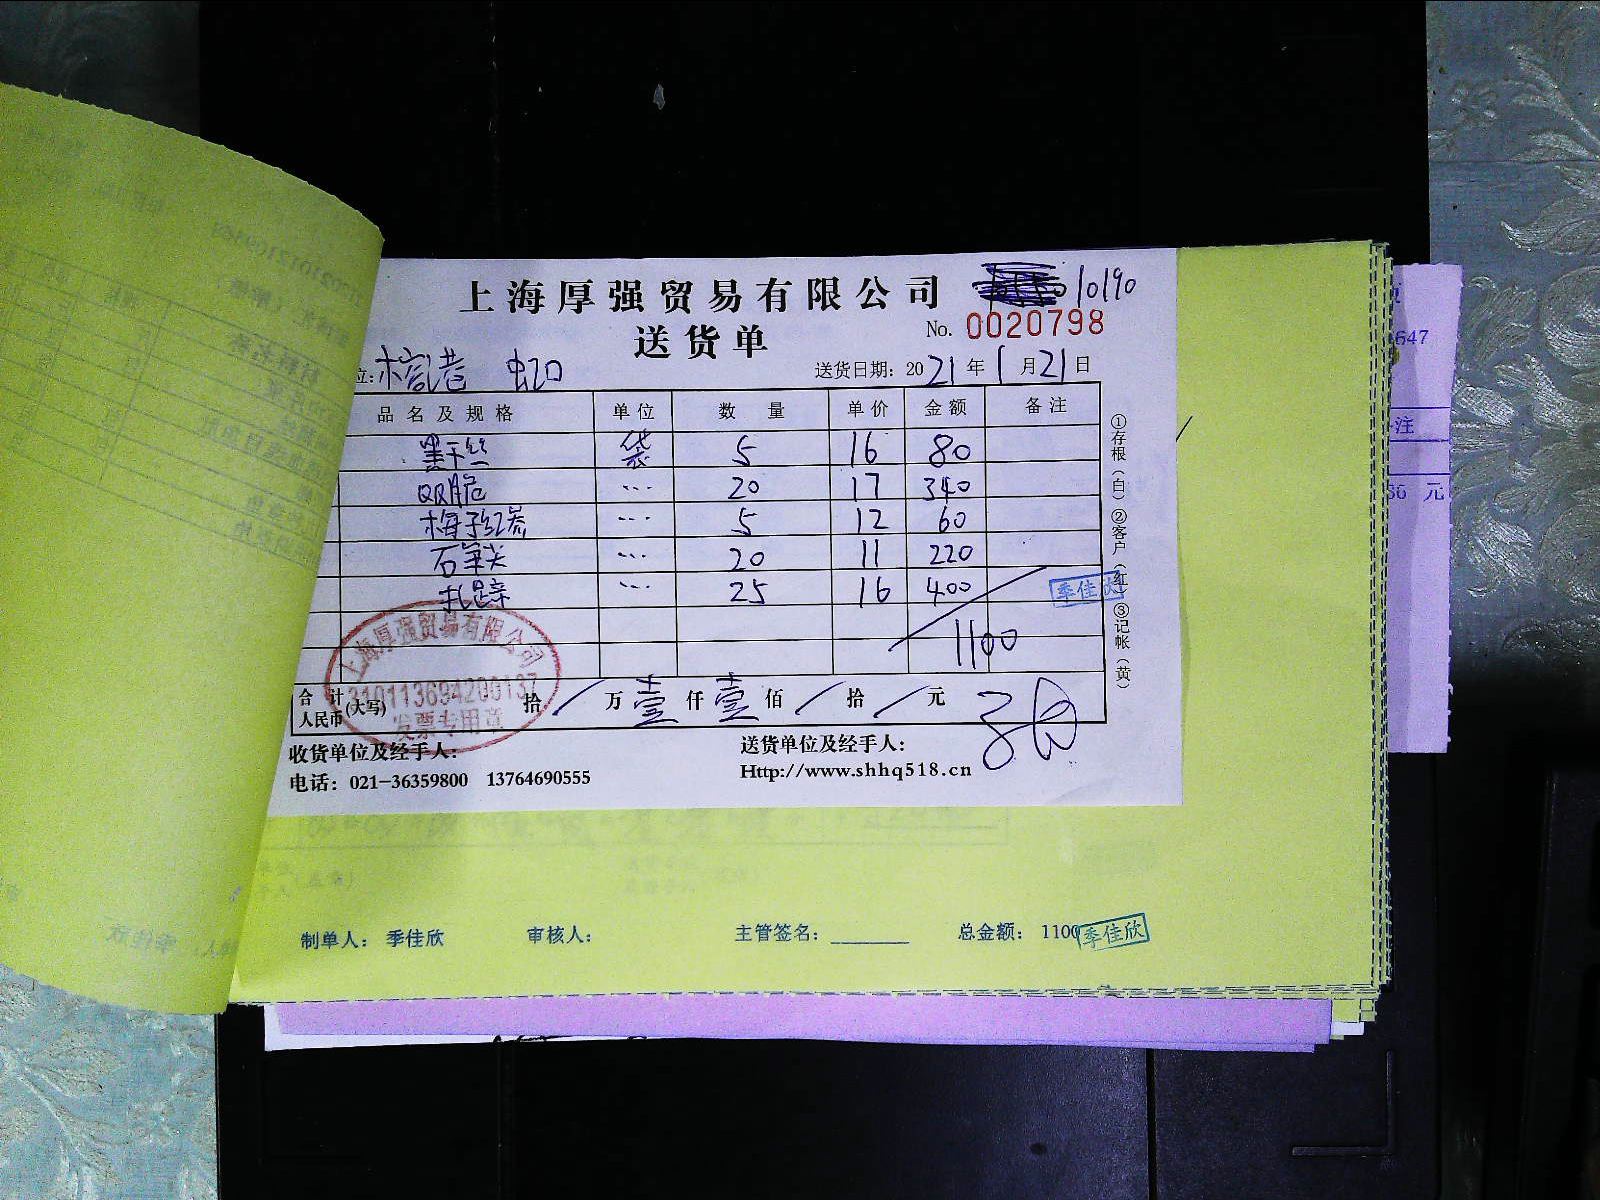 上海厚强贸易有限公司
10190
送货单
No. 0020798
位: 榕港 虹口
送货日期: 2021年1月21日
品名及规格 单位 数量 单价 金额 备注
黑干丝 袋 5 16 80
双脆 ... 20 17 340
梅子红荔 ... 5 12 60
石笋尖 ... 20 11 220
扎蹄 ... 25 16 400
季佳欣
1100
①存根(白)②客户(红)③记帐(黄)
上海厚强贸易有限公司
310113694200137
发票专用章
合计人民币(大写) 拾 / 万 壹 仟 壹 佰 / 拾 / 元
收货单位及经手人:
送货单位及经手人:
电话: 021-36359800 13764690555
Http://www.shhq518.cn
制单人: 季佳欣 审核人: 主管签名: 总金额: 1100
季佳欣
647
注
36 元